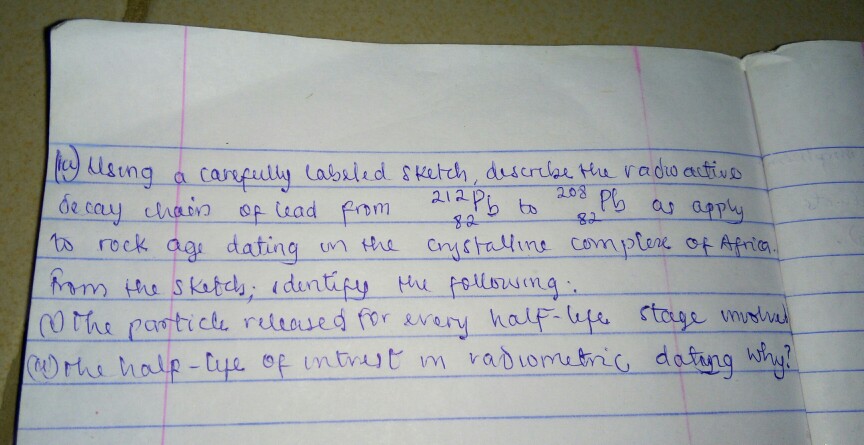 1(a) Using a carefully labeled sketch, describe the radioactive
decay chain of lead from ²¹²₈₂Pb to ²⁰⁸₈₂Pb as apply
to rock age dating in the crystalline complex of Africa.
From the sketch; identify the following:
(i) The particle released for every half-life stage involved
(ii) the half-life of intrest in radiometric dating why?